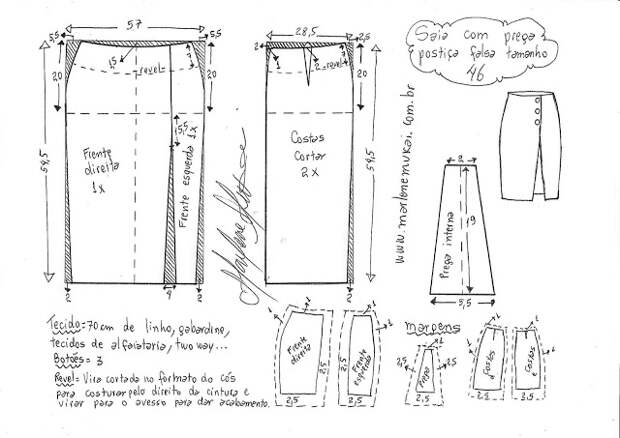 57
5,5
5,5
20
20
15
revel
2
59,5
Frente
direita
1x
5,5
Frente esquerda 1x
2
4
2
28,5
2,5
2
1
2
revel
2
20
59,5
Costas
Cortar
2x
2
Saia com prega
postiça falsa tamanho
46
www.marlenemukai.com.br
2
19
Prega interna
5,5
Tecido=70cm de linho, gabardine,
tecidos de alfaiataria, two way...
Botões= 3
Revel= Vira cortada no formato do cós
para costurar pelo direito da cintura e
virar para o avesso para dar acabamento.
1
1
Frente
direita
2,5
2,5
1
1
Frente
esquerda
2,5
2,5
margens
1
2,5
Prega
2,5
1
Costas
d
2,5
1
Costas
e
2,5
3,5